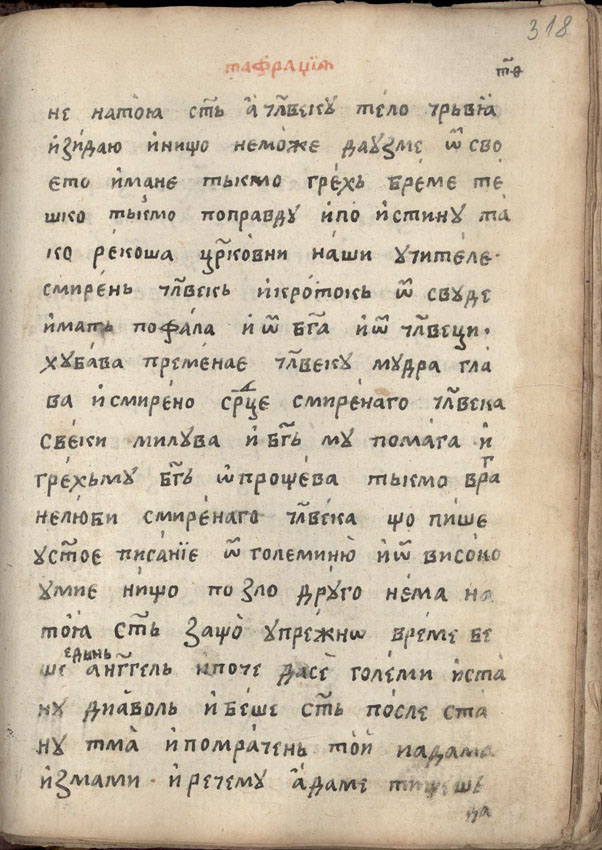 318
тафрациꙗ
т҃ѳ
не натоꙗ ст҃ь а҆ чл҃веку тело трьвїа
и҆зи́даю и҆нищо немо́же даузме ѿ сво
ето и҆мане тькмо грѐхь бре́ме те́
шко тькмо поправду и҆по и҆стину та́
ко ре́коша цр҃ковни на́ши учите́ле·
смире́нь чл҃векь и҆кро́токь ѿ свуде
и҆мать пофа́ла и҆ ѿ бг҃а и҆ѿ чл҃веци·
хуба́ва премѐнае чл҃веку му́дра гла
ва и҆смире́но ср҃дце смире́наго чл҃века
све́ки милува и҆ бг҃ь му пома́га и҆
гре́хьму бг҃ь ѡ҆проще́ва тькмо враг
нелю́би смире́наго чл҃века що пи́ше
у҆ст҃ое писа́нїе ѿ големиню̀ и҆ ѿ висо́ко
у҆мие ни́що по зло дру́го не́ма на
тоꙗ ст҃ь защо̀ упре́жнѡ вре́ме бе
ше едьнь а҆нг҃гель и҆поче дасѐ голе́ми и҆ста
ну диа́воль и҆ бе́ше ст҃ь по́сле ста
ну тма̀ и҆помра́чень то́и иадама
и҆змами· и҆ речему а҆́даме